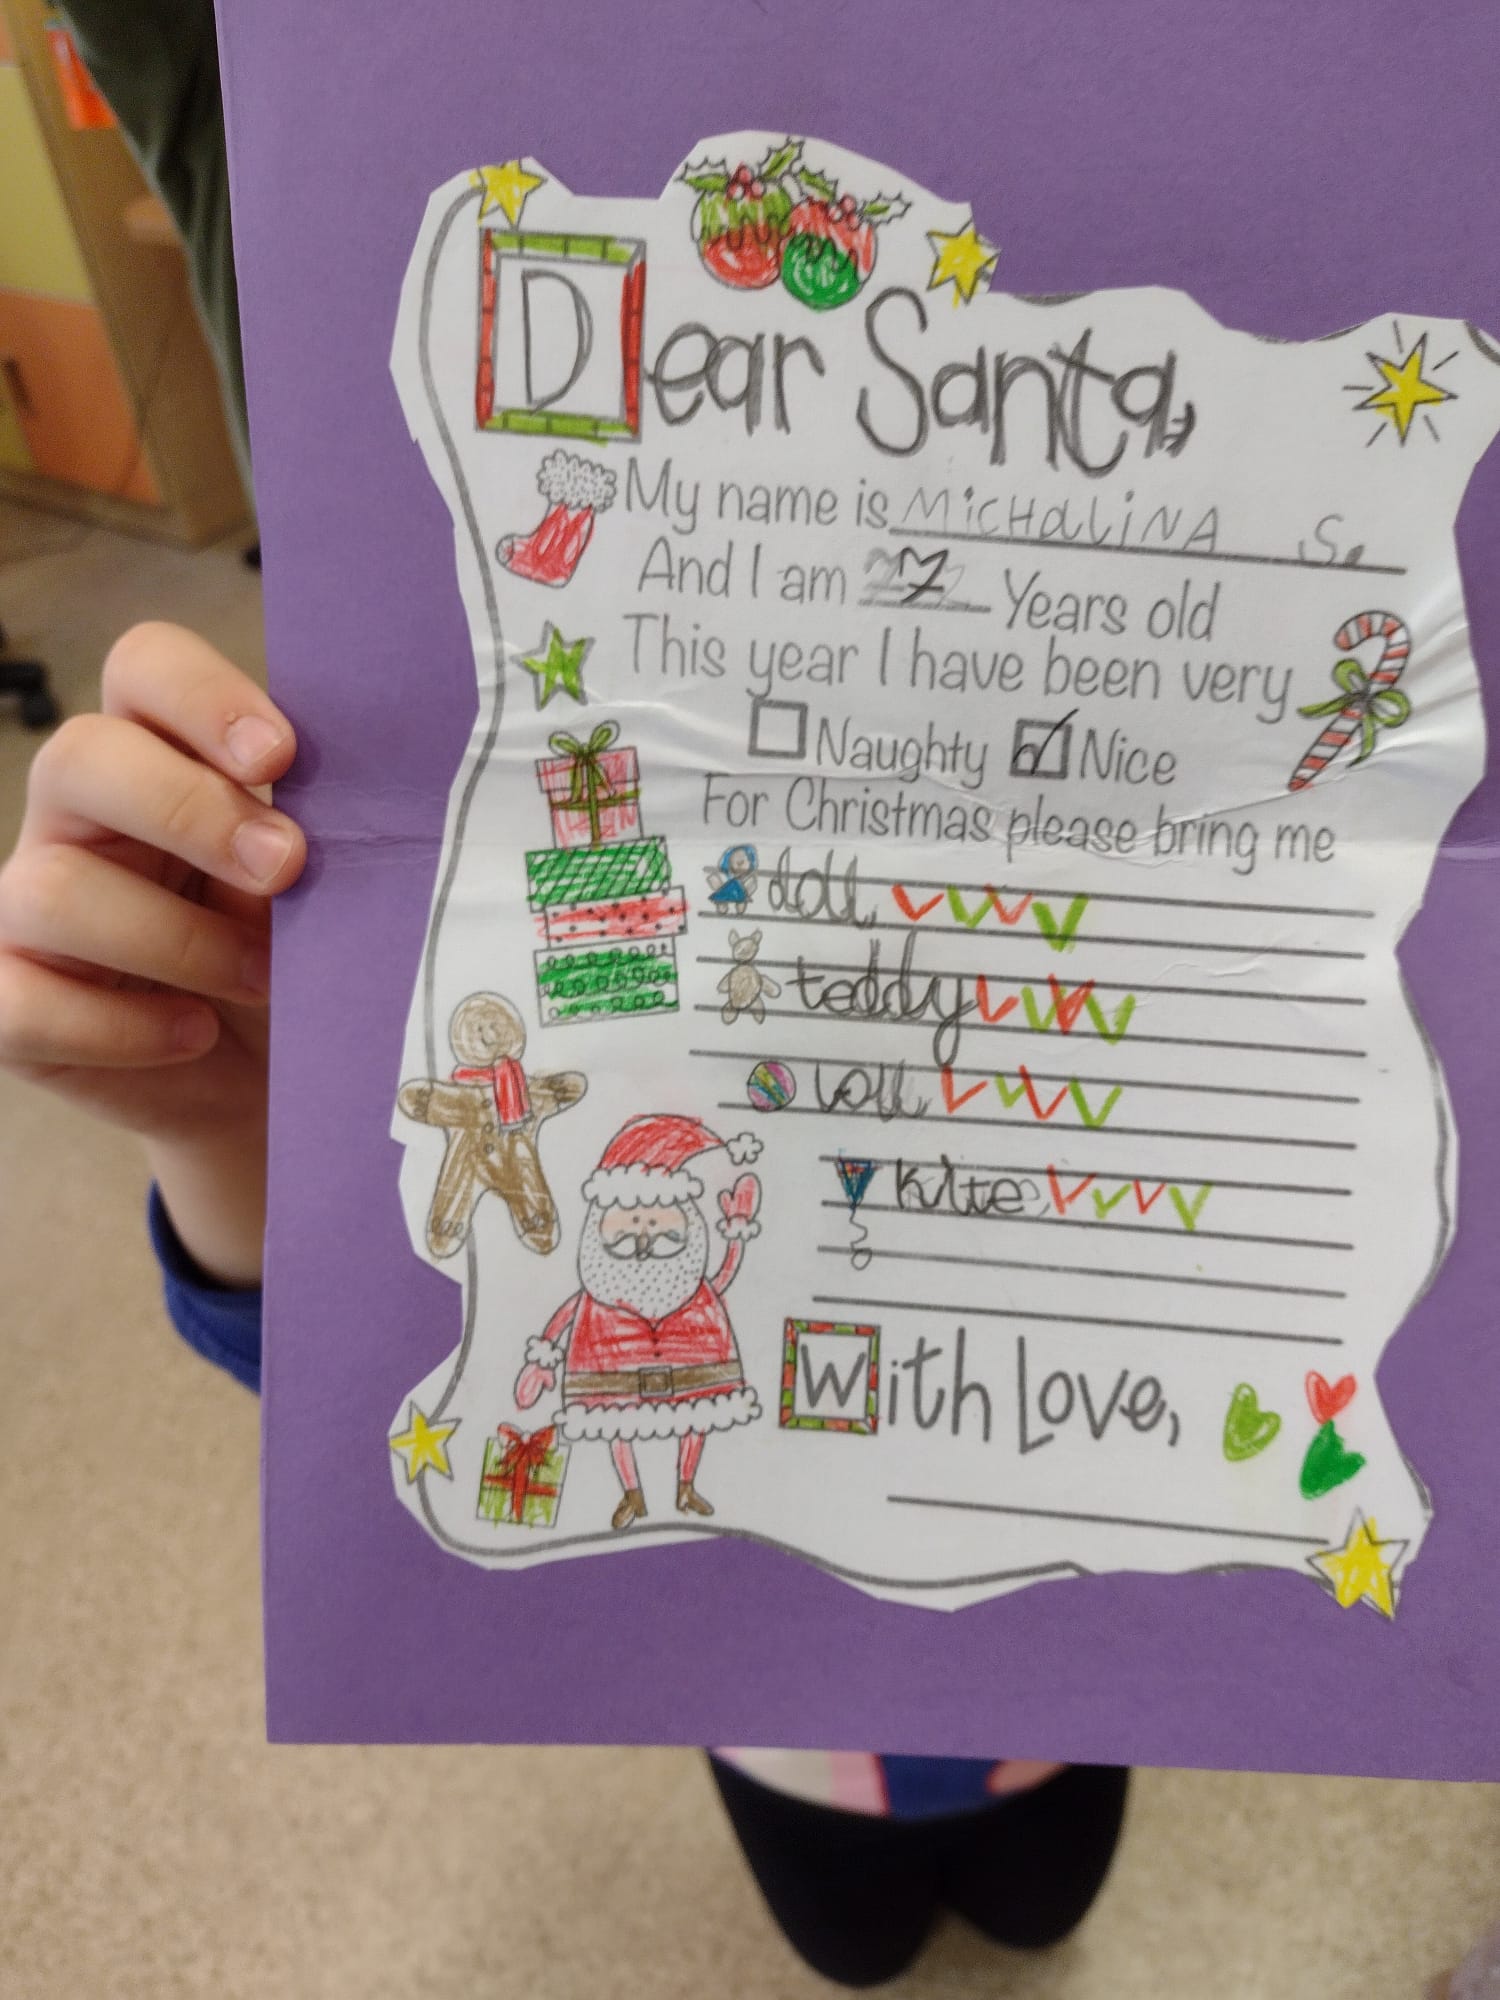 Dear Santa,
My name is MicHaliNA S.
And I am 7 Years old
This year I have been very
Naughty Nice
For Christmas please bring me
doll
teddy
kite
With Love,